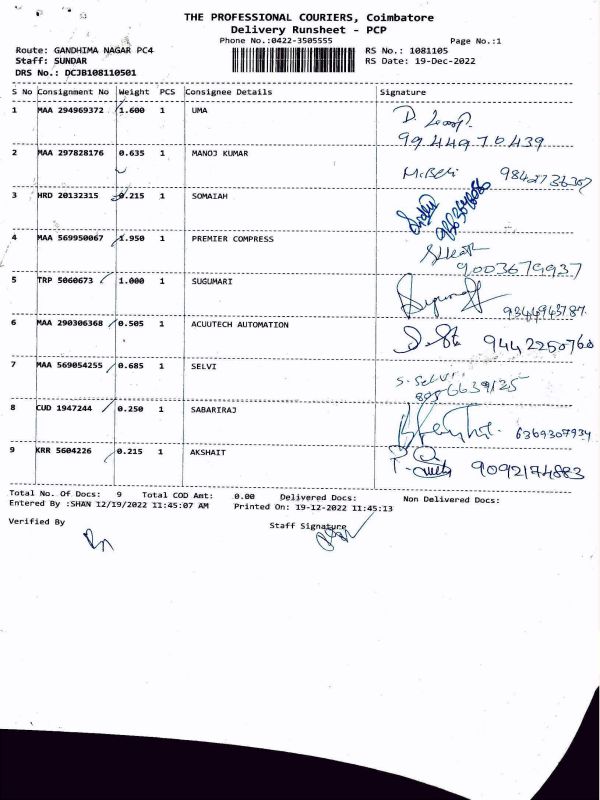 THE PROFESSIONAL COURIERS, Coimbatore
Delivery Runsheet - PCP
Phone No.:0422-3505555 Page No.:1
Route: GANDHIMA NAGAR PC4 RS No.: 1081105
Staff: SUNDAR RS Date: 19-Dec-2022
DRS No.: DCJB108110501
S No Consignment No Weight PCS Consignee Details Signature
1 MAA 294969372 1.600 1 UMA
99.449 70.439
2 MAA 297828176 0.635 1 MANOJ KUMAR
9842736307
3 HRD 20132315 0.215 1 SOMAIAH
4 MAA 569950067 1.950 1 PREMIER COMPRESS
9003679937
5 TRP 5060673 1.000 1 SUGUMARI
9344943787.
6 MAA 290306368 0.505 1 ACUUTECH AUTOMATION
9442250760
7 MAA 569054255 0.685 1 SELVI
S. Selvi
8 CUD 1947244 0.250 1 SABARIRAJ
6369307934
9 KRR 5604226 0.215 1 AKSHAIT
9092174883
Total No. Of Docs: 9 Total COD Amt: 0.00 Delivered Docs: Non Delivered Docs:
Entered By :SHAN 12/19/2022 11:45:07 AM Printed On: 19-12-2022 11:45:13
Verified By Staff Signature